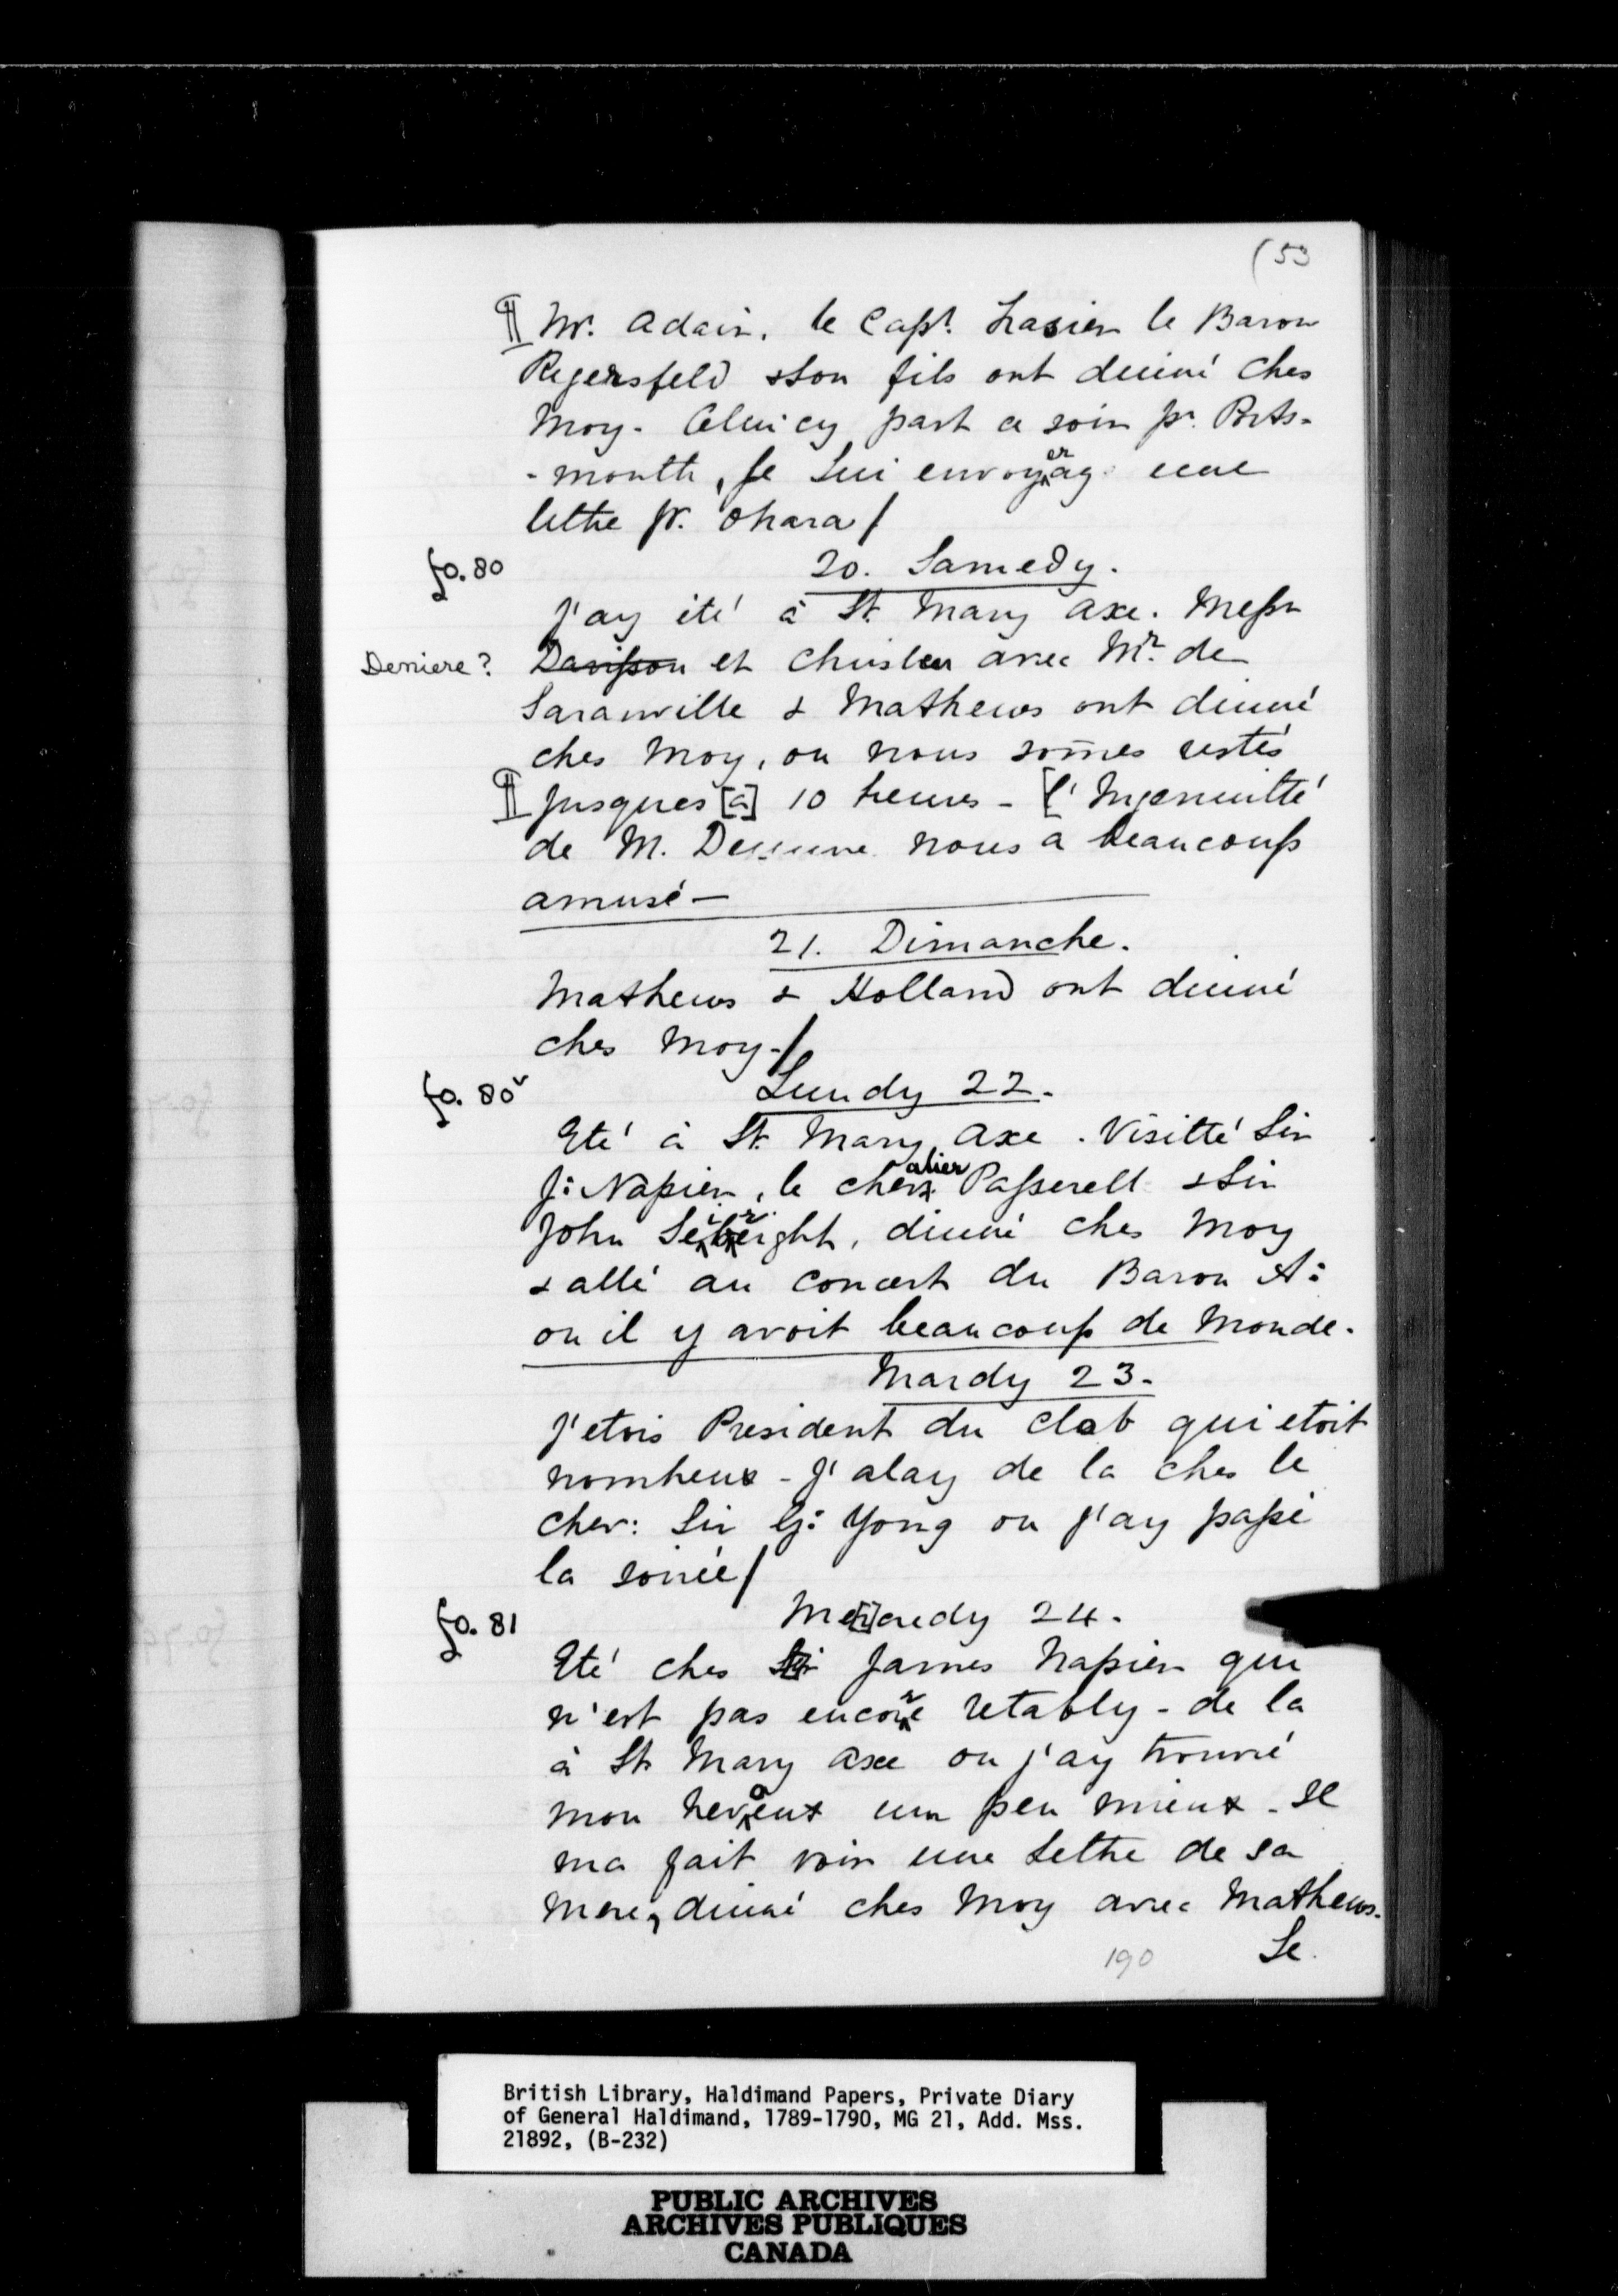 (53
¶ Mr. Adair, le Capt. Frasier le Baron
Regersfeld & son fils ont dinné ches
Moy. Celuicy part ce soir pr. Ports-
-mouth, Je Lui envoyeray une
lettre pr. Ohara/
fo. 80
20. Samedy.
J'ay été à St. Mary Axe. Messr
Derriere? Davisson et Christen avec Mr. de
Saranville & Mathews ont dinné
ches Moy, ou nous somes restés
¶ Jusques [à] 10 heures - [l'Ingenuitté
de M. nous a beaucoup
amusé -
21. Dimanche.
Mathews & Holland ont dinné
ches Moy-/
fo. 80v
Lundy 22.
Eté à St. Mary Axe. Visitté Sir
J: Napier, le chevalier Passerell & Sir
John Seibright, dinné ches Moy
& allé au concert du Baron A:
ou il y avoit beaucoup de Monde.
Mardy 23.
J'etois President du Clob qui etoit
nombeux - J'alay de la ches le
Chev: Sir G: Yong ou j'ay passé
la soirée/
fo. 81
Me[r]credy 24.
Eté ches Sir James Napier qui
n'est pas encore retably - de la
à St. Mary Axe ou j'ay trouvé
mon Neveux un peu mieux - Il
ma fait voir une Lettre de sa
Mere, dinné ches Moy avec Mathews.
190
Le
British Library, Haldimand Papers, Private Diary
of General Haldimand, 1789-1790, MG 21, Add. Mss.
21892, (B-232)
PUBLIC ARCHIVES
ARCHIVES PUBLIQUES
CANADA